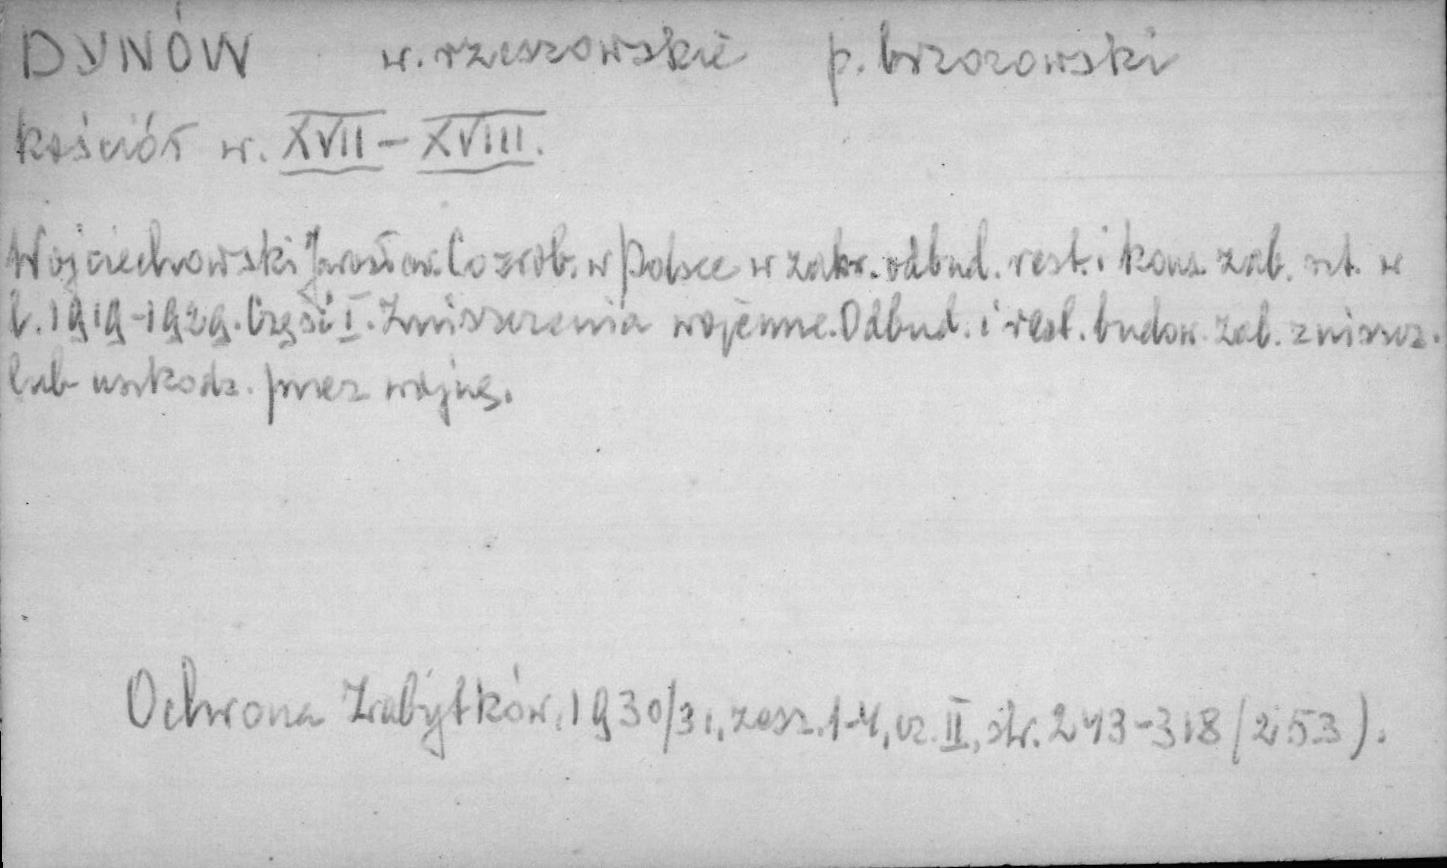 DYNÓW w. rzeszowskie p. brzozowski
kościół w. XVII – XVIII.
Wojciechowski Jarosław. Co zrob. w Polsce w zakr. odbud. rest. i kons. zab. szt. w
l. 1919-1929. Część I. Zniszczenia wojenne. Odbud. i rest. budow. zab. zniszcz.
lub uszkodz. przez wojnę.
Ochrona Zabytków, 1930/31, zesz. 1-4, cz. II, str. 243-318 (253).